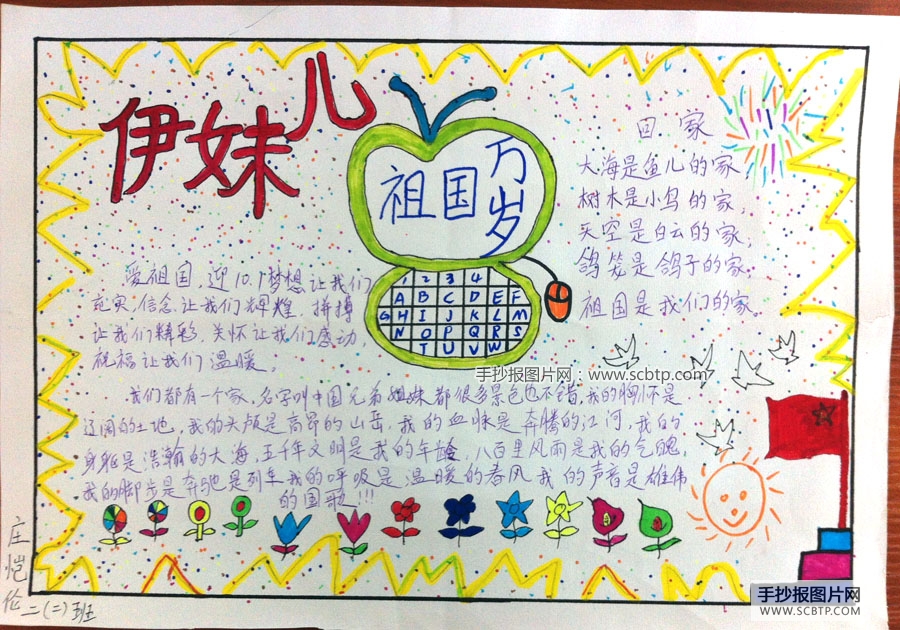 伊妹儿
祖国万岁
1 2 3 4
A B C D E F
G H I J K L M
N O P Q R S
T U V W
回家
大海是鱼儿的家,
树木是小鸟的家,
天空是白云的家,
鸽笼是鸽子的家,
祖国是我们的家。
爱祖国,迎10.1梦想让我们
充实,信念让我们辉煌 拼搏
让我们精彩,关怀让我们感动
祝福让我们温暖。
我们都有一个家,名字叫中国兄弟姐妹都很多景色也不错,我的胸怀是
辽阔的土地,我的头颅是高昂的山岳,我的血脉是奔腾的江河,我的
身躯是浩翰的大海,五千年文明是我的年龄,八百里风雨是我的气魄,
我的脚步是奔驰 列车我的呼吸是温暖的春风 我的声音是雄伟
的国歌!!!
手抄报图片网:www.scbtp.com
庄恺伦
二(二)班
手抄报图片网
WWW.SCBTP.COM